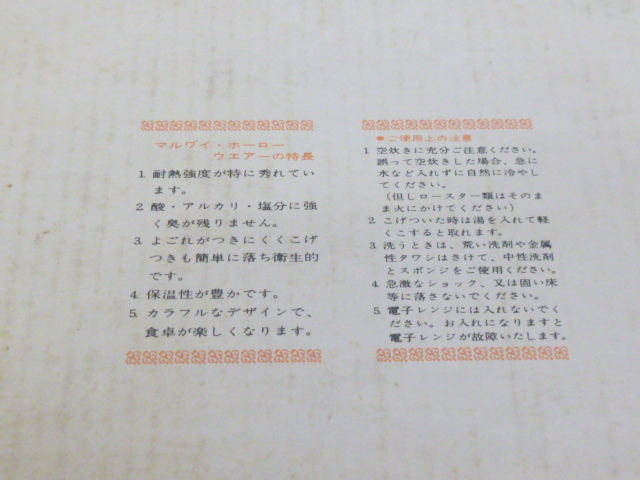 マルワイ・ホーロー
ウエアーの特長
1. 耐熱強度が特に秀れてい
ます。
2. 酸・アルカリ・塩分に強
く臭が残りません。
3. よごれがつきにくくこげ
つきも簡単に落ち衛生的
です。
4. 保温性が豊かです。
5. カラフルなデザインで、
食卓が楽しくなります。
●ご使用上の注意
1. 空炊きに充分ご注意ください。
誤って空炊きした場合、急に
水など入れずに自然に冷やし
てください。
(但しロースター類はそのま
ま火にかけてください)
2. こげついた時は湯を入れて軽
くこすると取れます。
3. 洗うときは、荒い洗剤や金属
性タワシはさけて、中性洗剤
とスポンジをご使用ください。
4. 急激なショック、又は固い床
等に落さないでください。
5. 電子レンジには入れないでく
ださい。お入れになりますと
電子レンジが故障いたします。